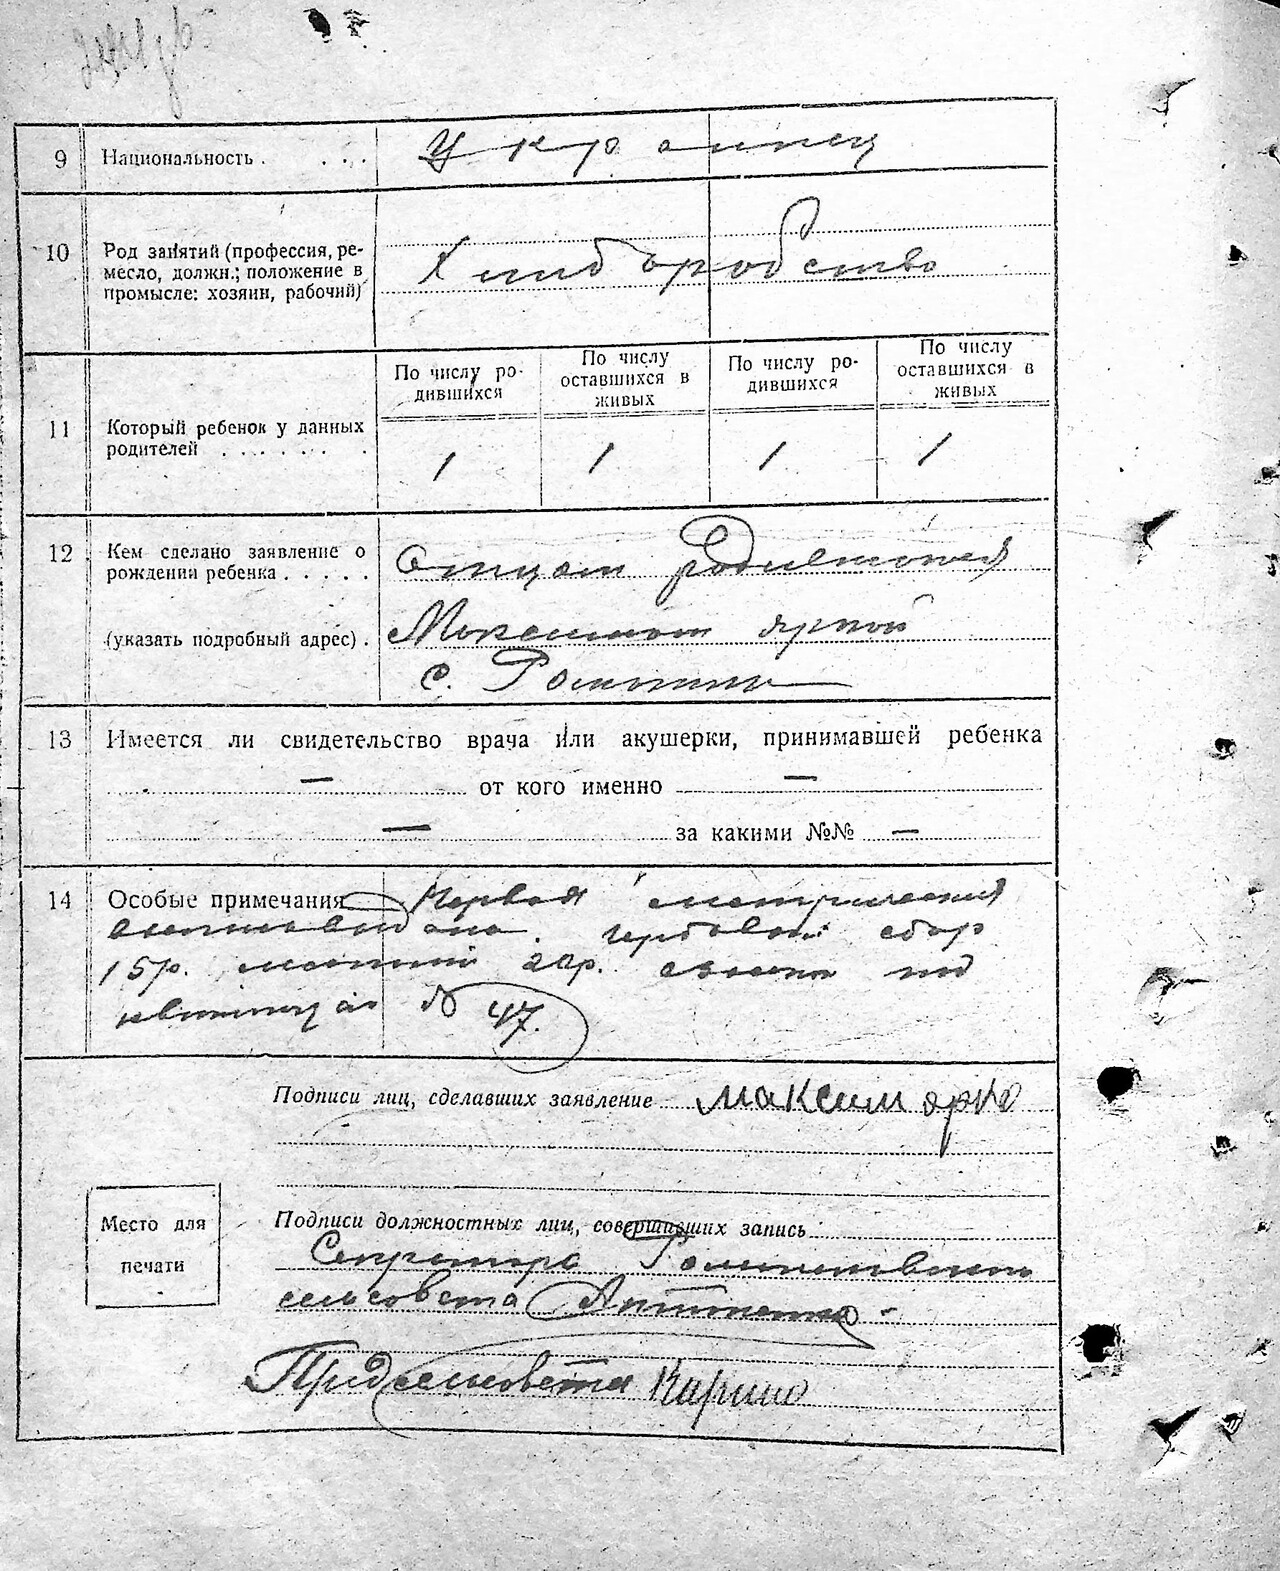 9 Национальность . . . . Украинец
10 Род занятий (профессия, ре-
месло, должн.; положение в
промысле: хозяин, рабочий)
Хлиборобство
11 Который ребенок у данных
родителей . . . . . . .
По числу ро-
дившихся
По числу
оставшихся в
живых
По числу ро-
дившихся
По числу
оставшихся в
живых
1 1 1 1
12 Кем сделано заявление о
рождении ребенка . . . . .
(указать подробный адрес) .
Отцом
Максимом Яркой
с.
13 Имеется ли свидетельство врача или акушерки, принимавшей ребенка
— от кого именно —
— за какими №№ —
14 Особые примечания Первая метрическая
сбор
15р. 20р. под
№ 47.
Подписи лиц, сделавших заявление Максим Ярко
Место для
печати
Подписи должностных лиц, совершивших запись
Секретарь
сельсовета
Пред сельсовета